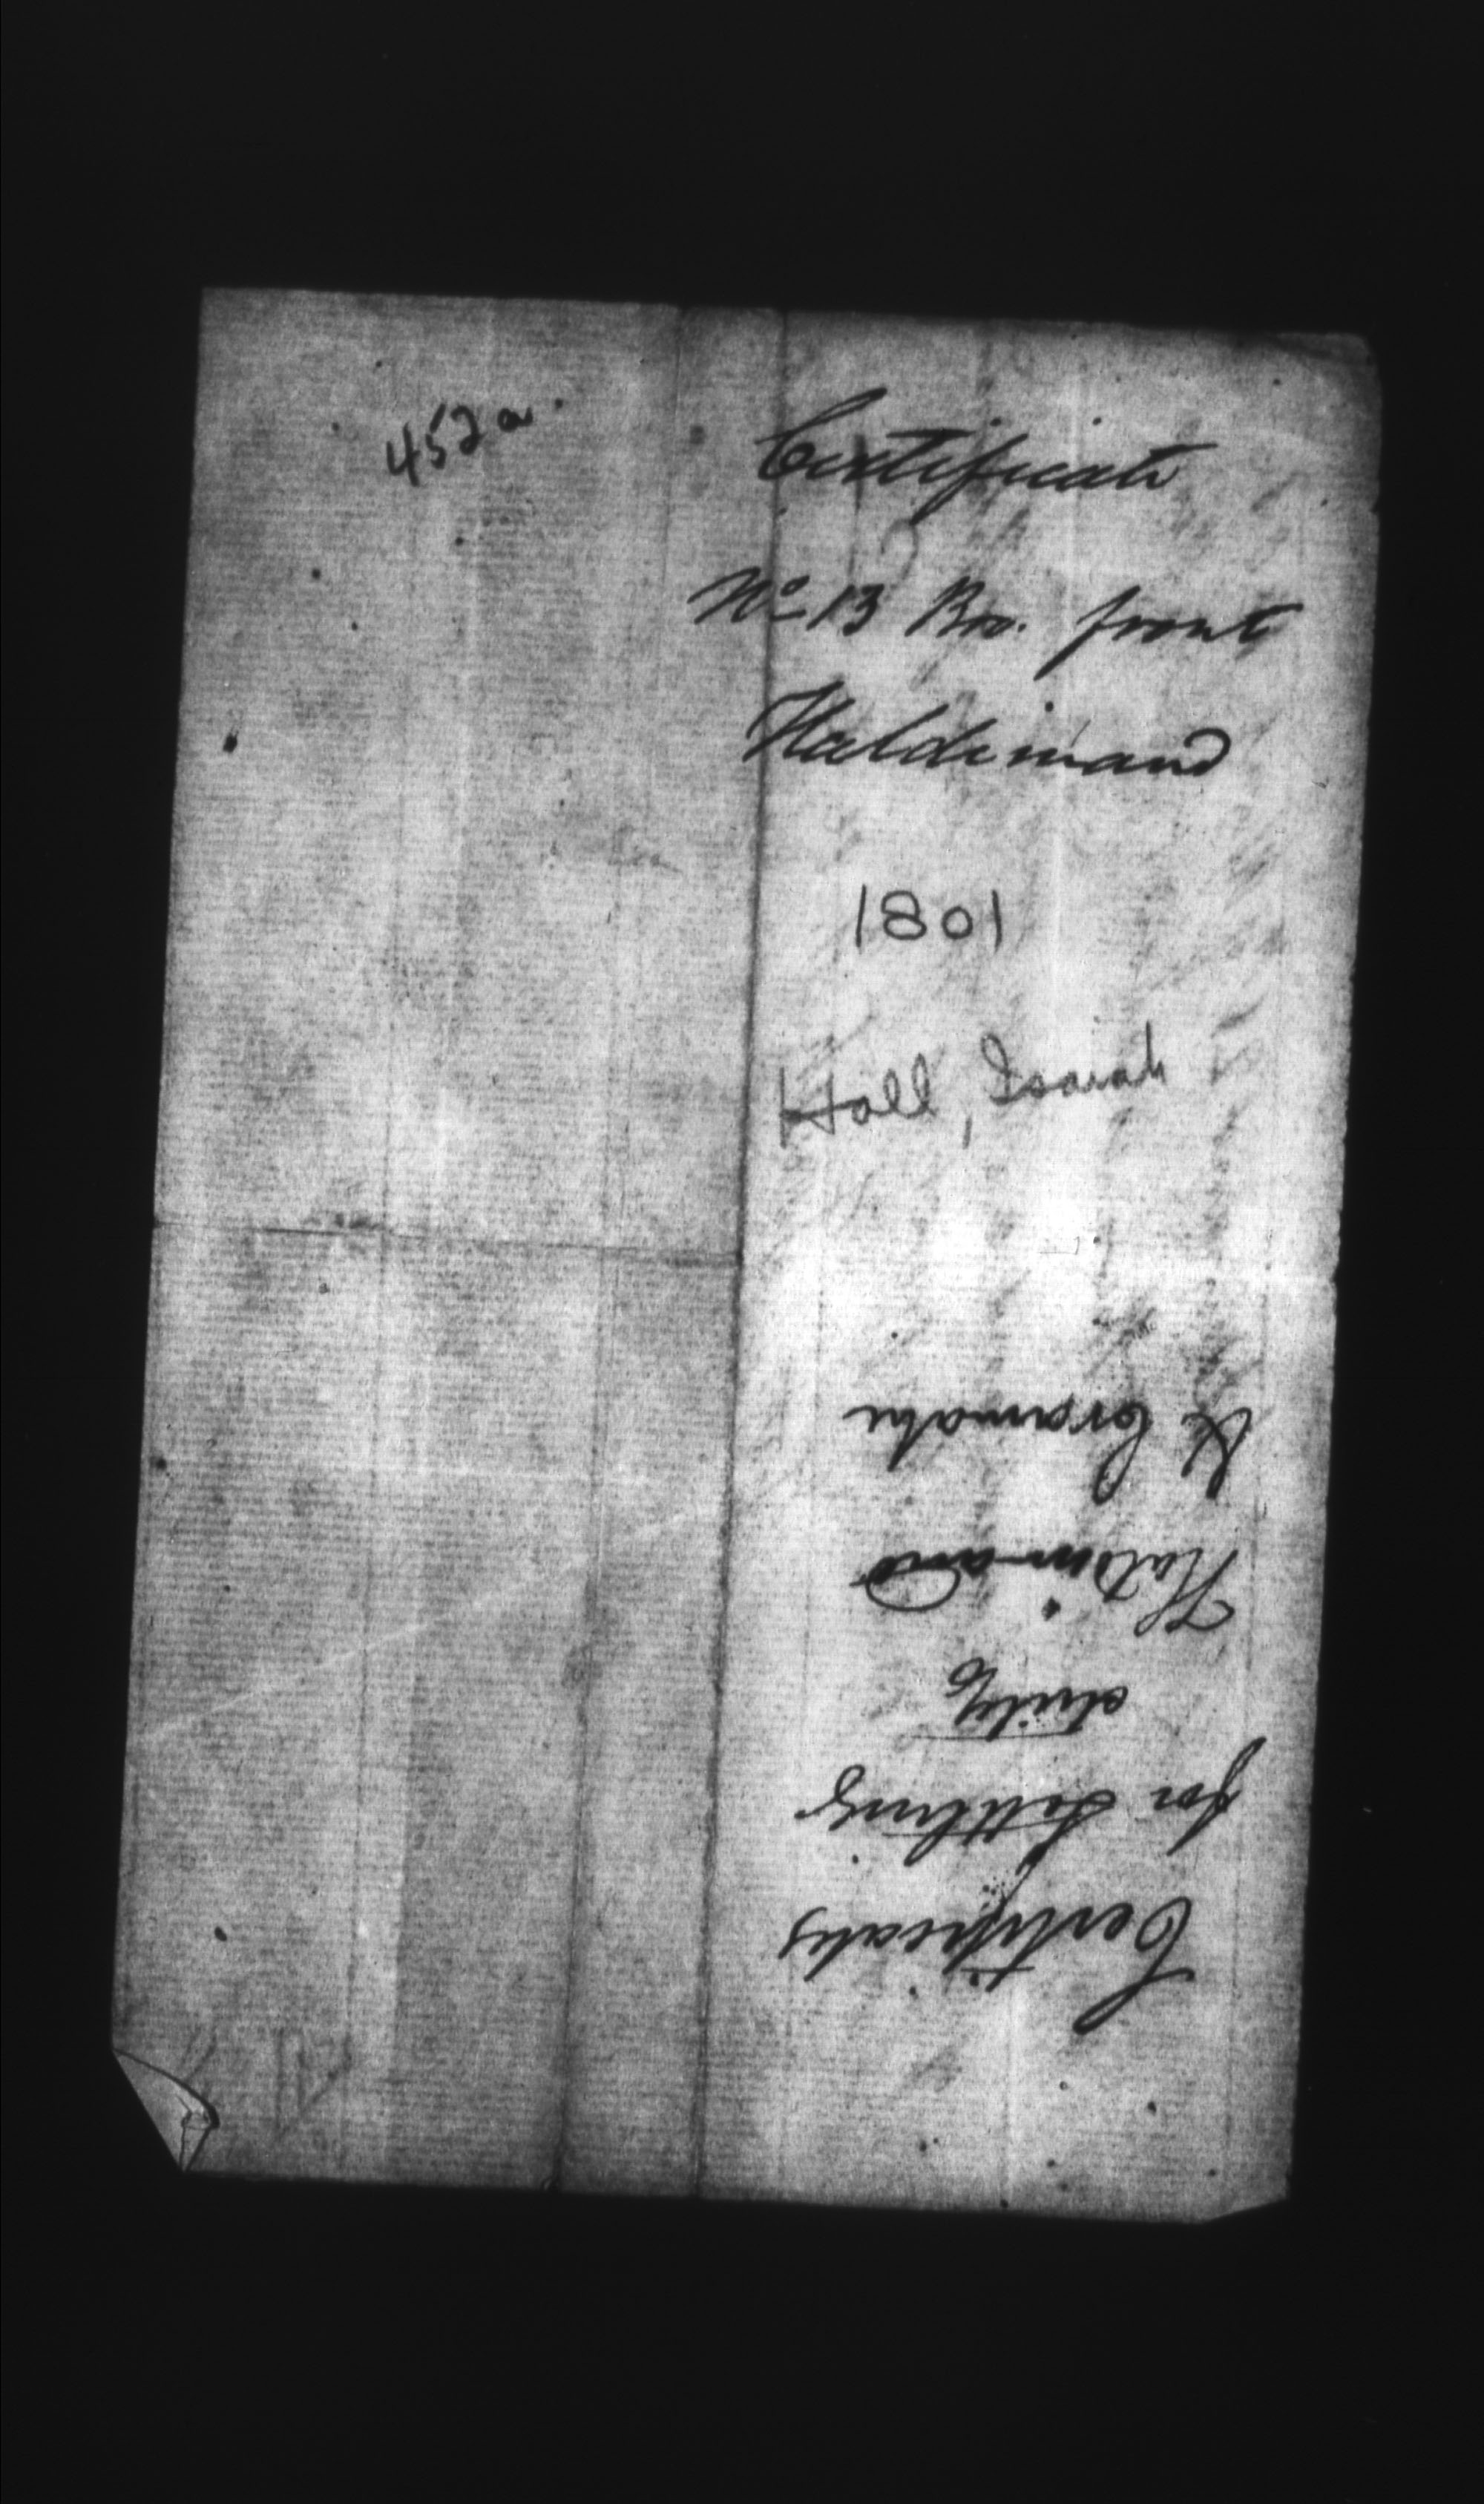 452 a.
Certificate
No 13 Bro. front
Haldimand
1801
Hall, Isaiah
Certificates
for Settling
duty
Haldimand
& Cramahe